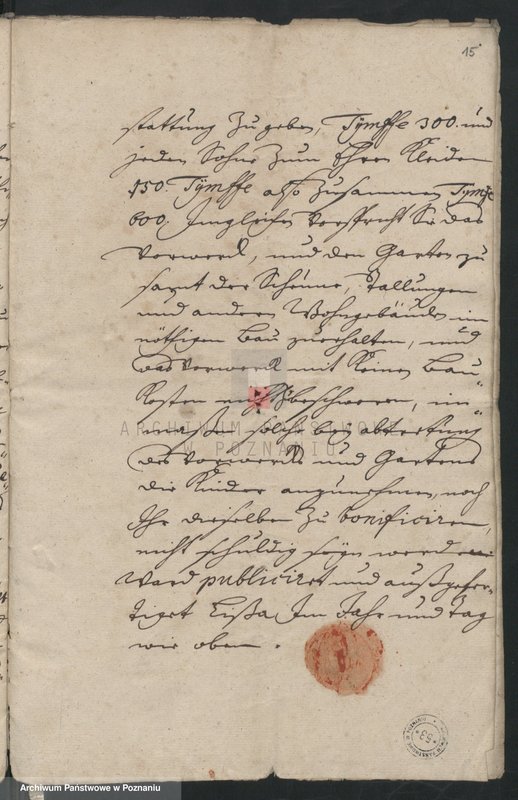 15
stattung Zu geben, Tÿmffe 300. und
jeden Sohne Zum Ehren Kleidern
150. Tÿmffe also Zusammen Tÿmffe
600. Imgleichen verspricht Er das
Vorwerck, und den Garten zu
samt der Scheune, Stallungen
und andern Wohngebäuden im
nöthigen Bau zuerhalten, und
das Vorwerck mit keinen Bau
Kosten nicht Zubeschweren, im
maßen solche bey abtretung
des Vorwercks und Gartens
die Kinder anzunehmen, noch
Ihr dieselben Zu bonificiren,
nicht schuldig seÿn werden
Ward publiciret und außgefer-
tiget Lißa Im Jahr und tag
wie oben.
ARCHIWUM PAŃSTWOWE
W POZNANIU
53
Archiwum Państwowe w Poznaniu